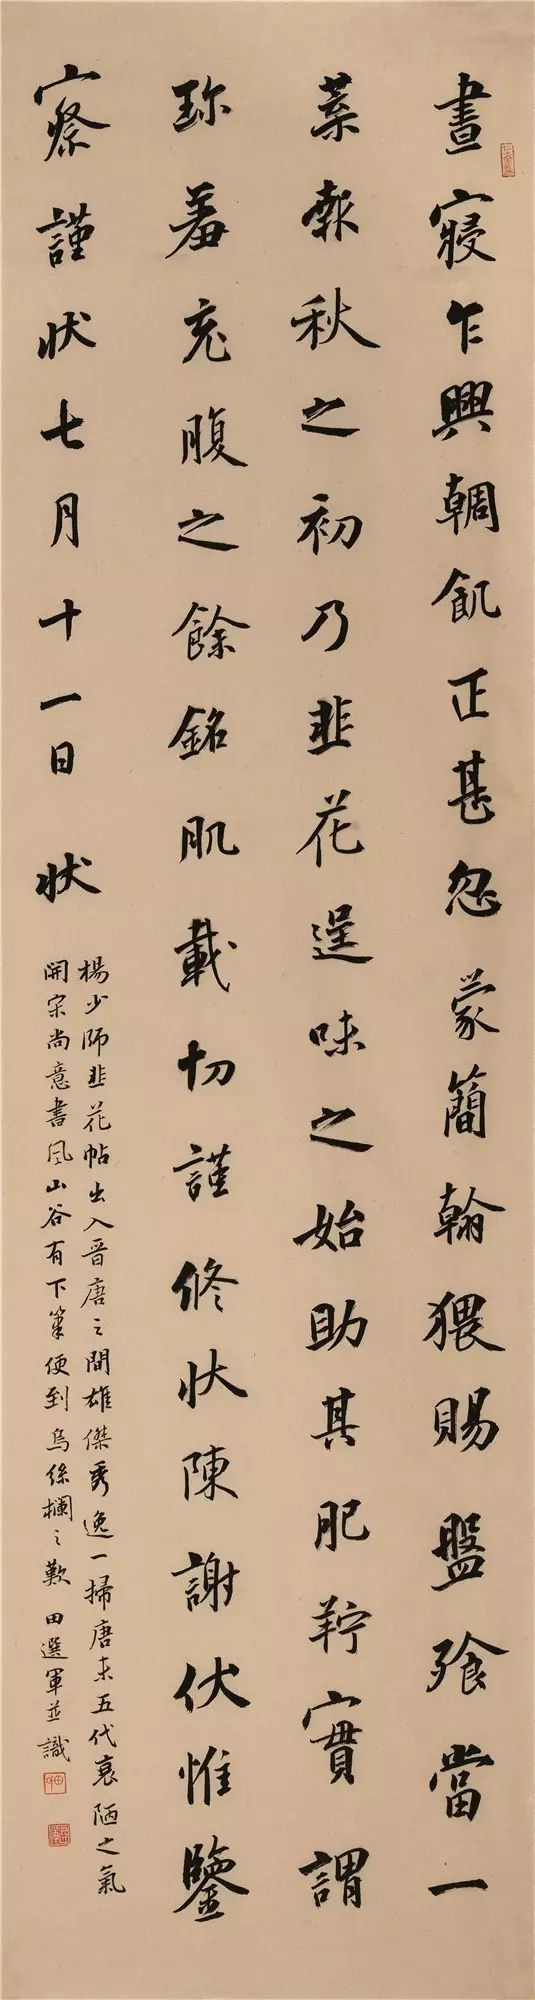 晝寢乍興朝飢正甚忽蒙簡翰猥賜盤飱當一
葉報秋之初乃韭花逞味之始助其肥羜實謂
珎羞充腹之餘銘肌載切謹脩狀陳謝伏惟鑒
察謹狀七月十一日 狀
楊少師韭花帖出入晉唐之間雄傑秀逸一掃唐末五代衰陋之氣
開宋尚意書風山谷有下筆便到烏絲欄之歎 田選軍並識